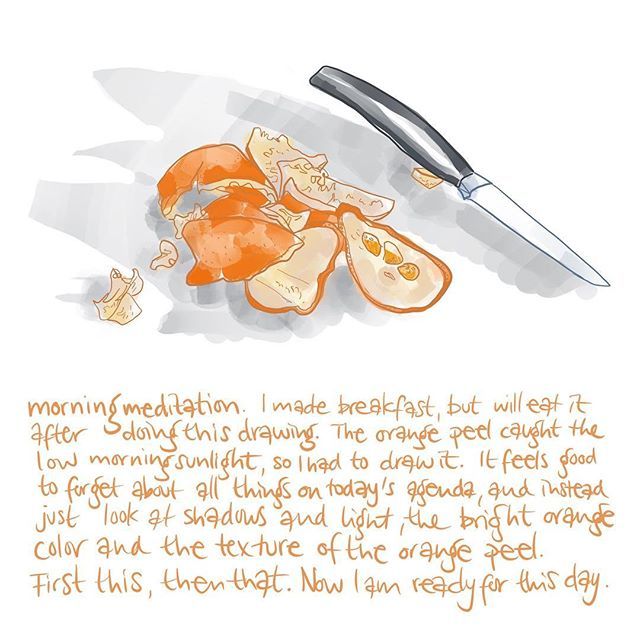 morning meditation. I made breakfast, but will eat it
after doing this drawing. The orange peel caught the
low morning sunlight, so I had to draw it. It feels good
to forget about all things on today's agenda, and instead
just look at shadows and light, the bright orange
color and the texture of the orange peel.
First this, then that. Now I am ready for this day.